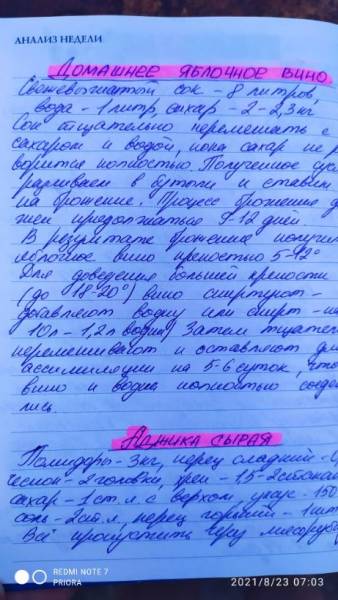 АНАЛИЗ НЕДЕЛИ
ДОМАШНЕЕ ЯБЛОЧНОЕ ВИНО
Свежевыжатый сок - 8 литров,
вода - 1 литр, сахар - 2-2,3 кг
Сок тщательно перемешать с
сахаром и водой, пока сахар не р
ворится полностью. Полученное сус
разливаем в бутыли и ставим
на брожение. Процесс брожения д
жен продолжаться 9-12 дней.
В результате брожения получ
яблочное вино крепостью 5-12°
Для доведения большей крепости
(до 18-20°) вино спиртуют -
добавляют водку или спирт - н
10л - 1,2л водки) Затем тщател
перемешивают и оставляют дл
ассимиляции на 5-6 суток, что
вино и водка полностью соеди
лись.
АДЖИКА СЫРАЯ
Помидоры - 3кг, перец сладкий -
чеснок - 2 головки, хрен - 1,5-2 стакан
сахар - 1 ст.л с верхом, уксус - 150
соль - 2 ст.л, перец горький - 1 шт
Всё пропустить через мясоруб
REDMI NOTE 7
PRIORA
2021/8/23 07:03